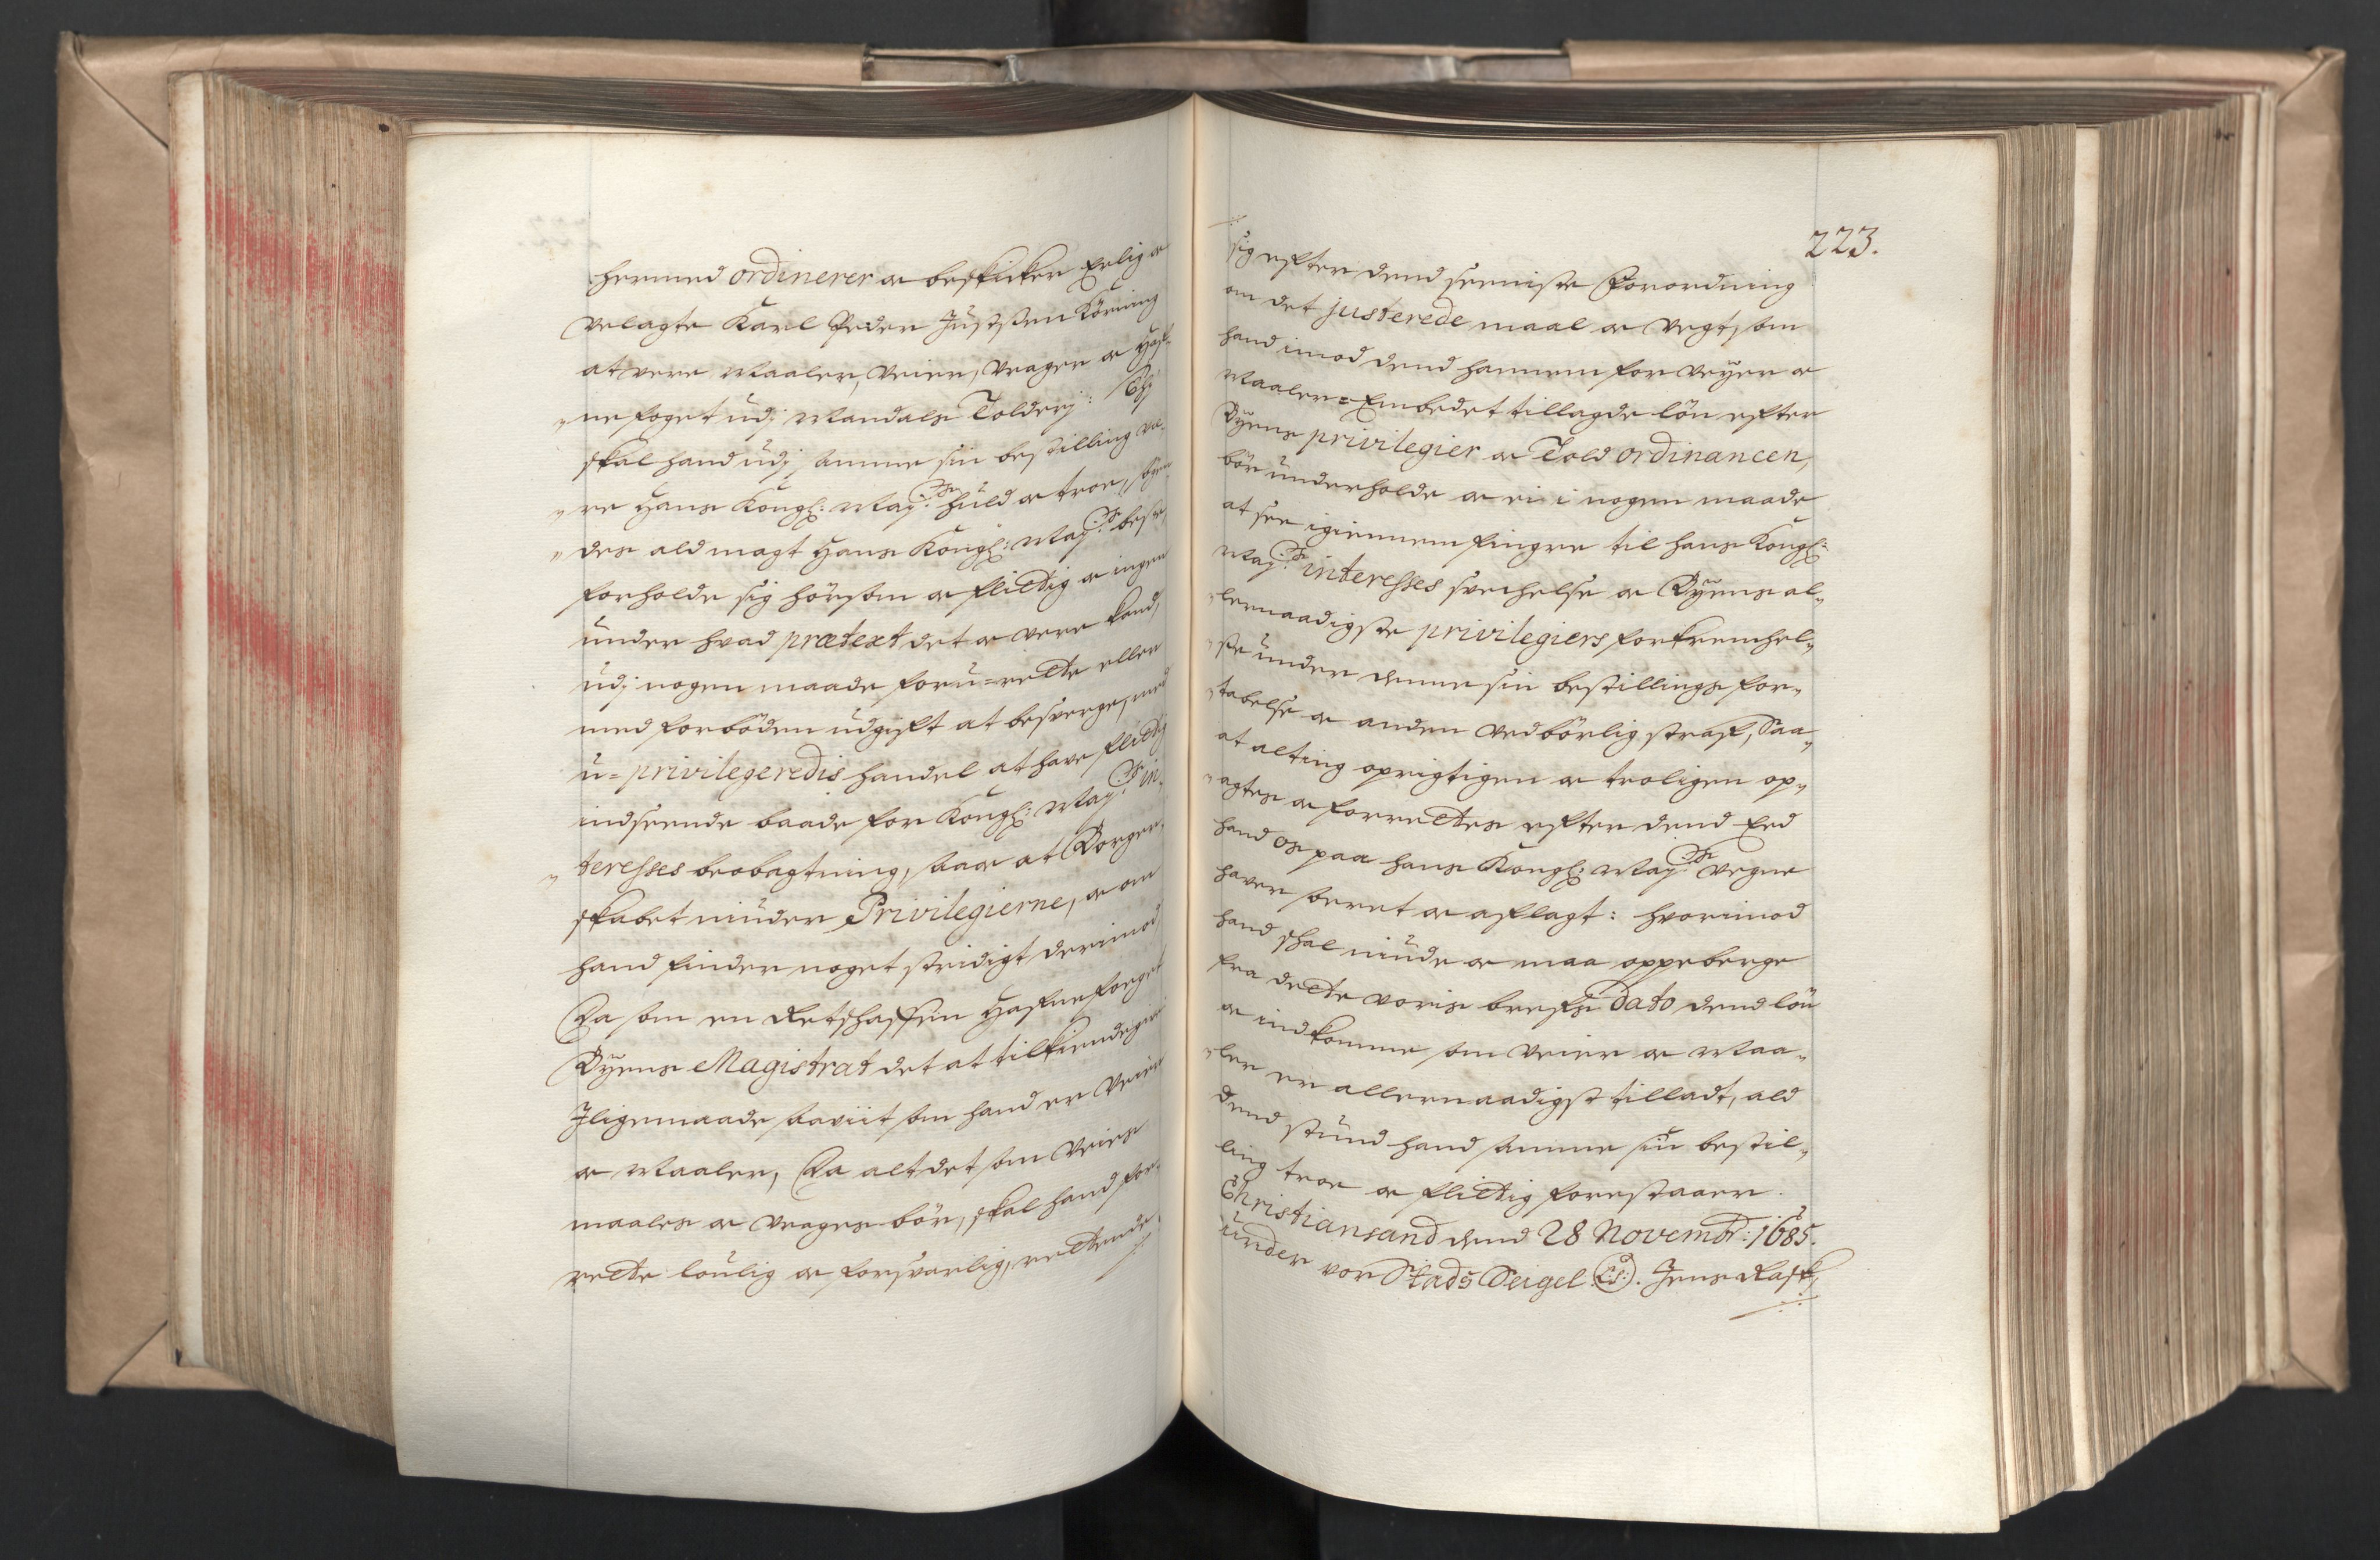 hermed ordinerer oc beskicker Erlig oc
velagte Karl Peder Justsen Körning
at vere Maaler, Veier, Vrager oc Haf„
„ne foget udj Mandals Tolderj: Thj
skal hand udj samme sin bestilling væ„
„re Hans Kongl: May:ts huld oc troe, söge
„des ald magt Hans Kongl: May:ts beste,
forholde sig hörsom oc flittig oc ingen
under hvad prætext det oc vere kand,
udj nogen maade foru=rette eller
med forböden udgift at besverge, med
u=privilegeredis handel at have flittig
indseende baade for Kongl: May:ts in„
„teresses beobagtning, saa oc at Borger„
skabet niuder Privilegierne, oc om
hand finder noget stridigt derimod,
Da som en Retschaffen Hafnefoget
Byens Magistrat det at tilkiendegive
Jligemaade saaviit som hand er Veier
oc Maaler, Da alt det som Veies
maales oc Vrages bör, skal hand for„
rette loulig oc forsvarlig, rettende
223.
sig efter dend seeniste Forordning
om det justerede maal oc Vegt, som
hand imod dend hannem for Veyer oc
Maaler=Embedet tillagde lön efter
Byens privilegier oc Told ordinancen,
bör underholde oc ei i nogen maade
at see igiennem fingre til hans Kongl:
May:ts interesses svechelse oc Byens al„
„lernaadigste privilegiers forkrenchel„
„se under denne sin bestillings for„
„tabelse oc anden vedbörlig straf, Saa„
at alting oprigtigen oc troligen op„
„agtes oc forrettes efter dend Eed
hand os paa hans Kongl: May:ts Vegne
haver soeret oc aflagt: hvorimod
hand schal niude oc maa oppeberge
fra dette voris brefs Dato dend lön
oc indkomme som Veier oc Maa„
„ler er allernaadigst tilladt, ald
dend stund hand samme sin bestil„
ling troe oc flittig forestaaer.
Christiansand dend 28 Novembr: 1685.
under vor Stads Seigel (LS). Jens Rask,